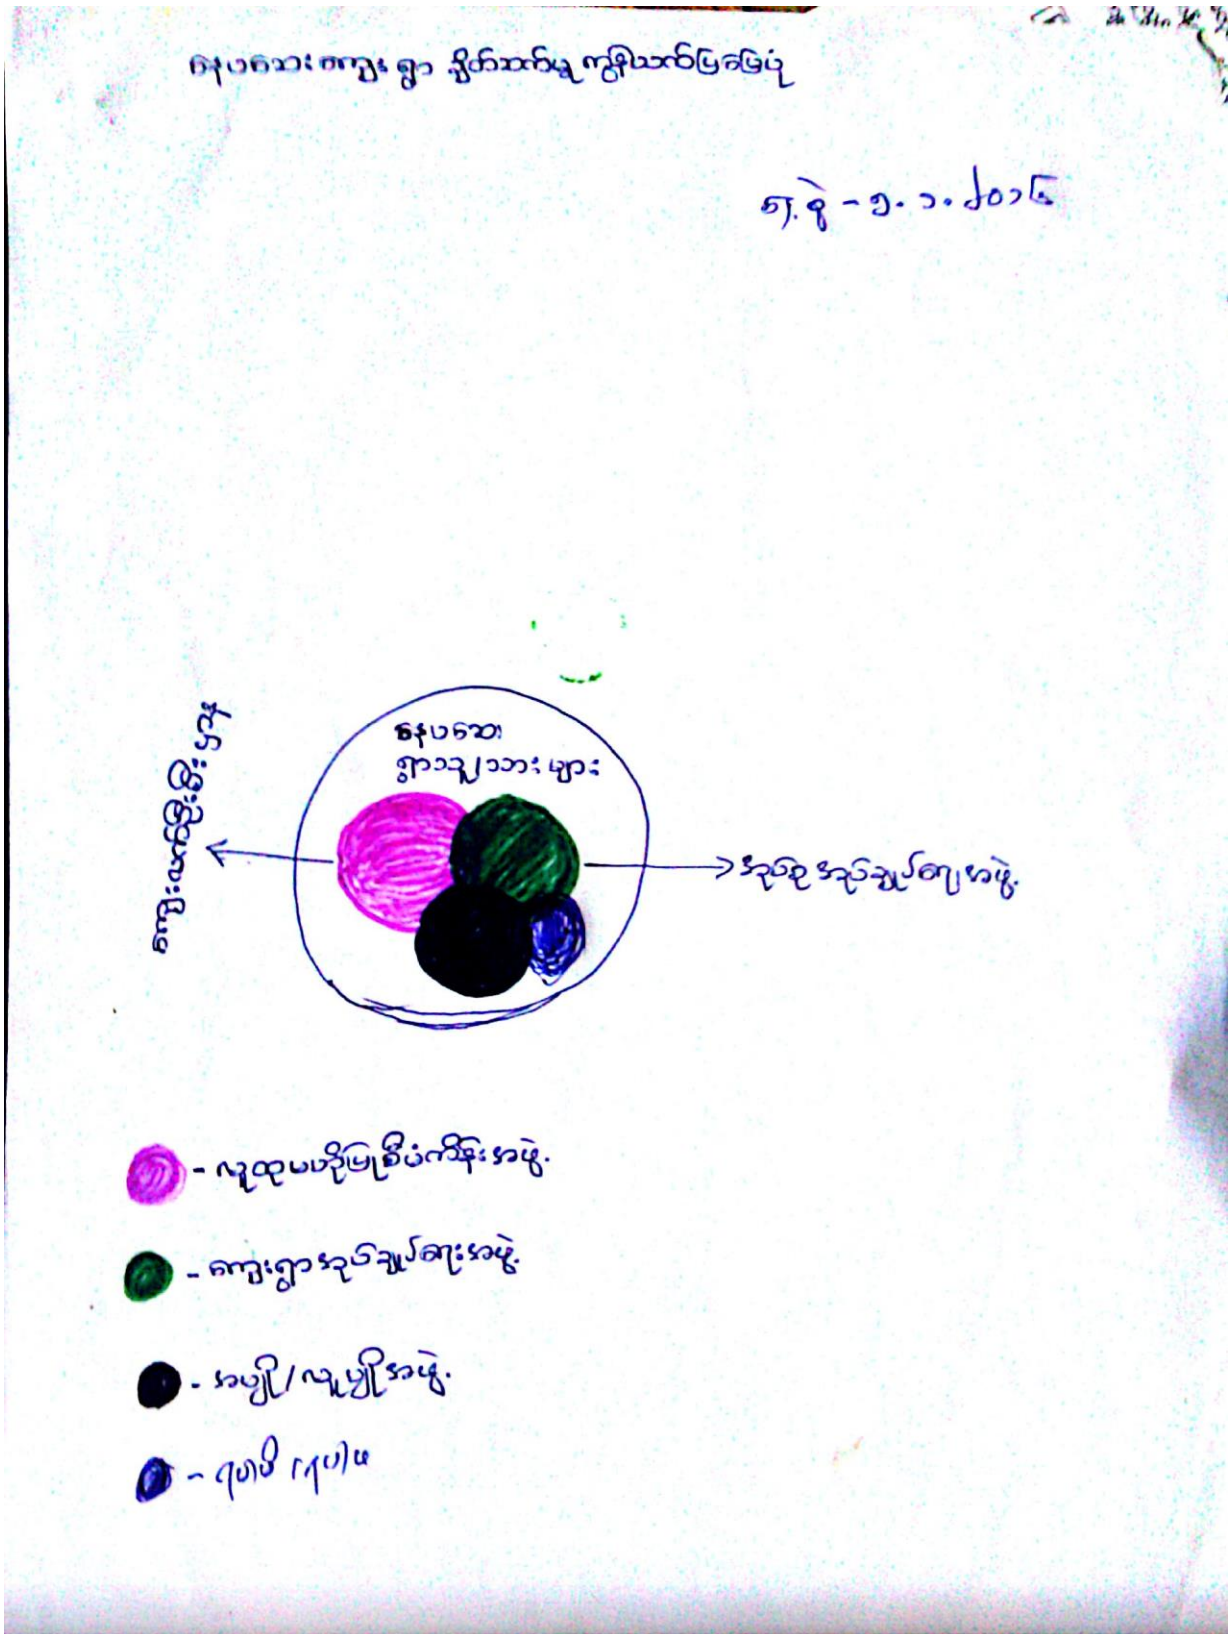 နေပသေးကျေးရွာ ချိတ်ဆက်မှု ကွန်ယက်ပြမြေပုံ
ရေးဆွဲ - ၅.၁.၂၀၁၆
နေပသေး
ရွာသူ/သားများ
ကျေးလက်ဦးစီးဌာန
အုပ်စု အုပ်ချုပ်ရေးအဖွဲ့
- လူထုဗဟိုပြုစီမံကိန်းအဖွဲ့
- ကျေးရွာအုပ်ချုပ်ရေးအဖွဲ့
- အပျို/လူပျိုအဖွဲ့
- ရပ်မိ/ရပ်ဖ